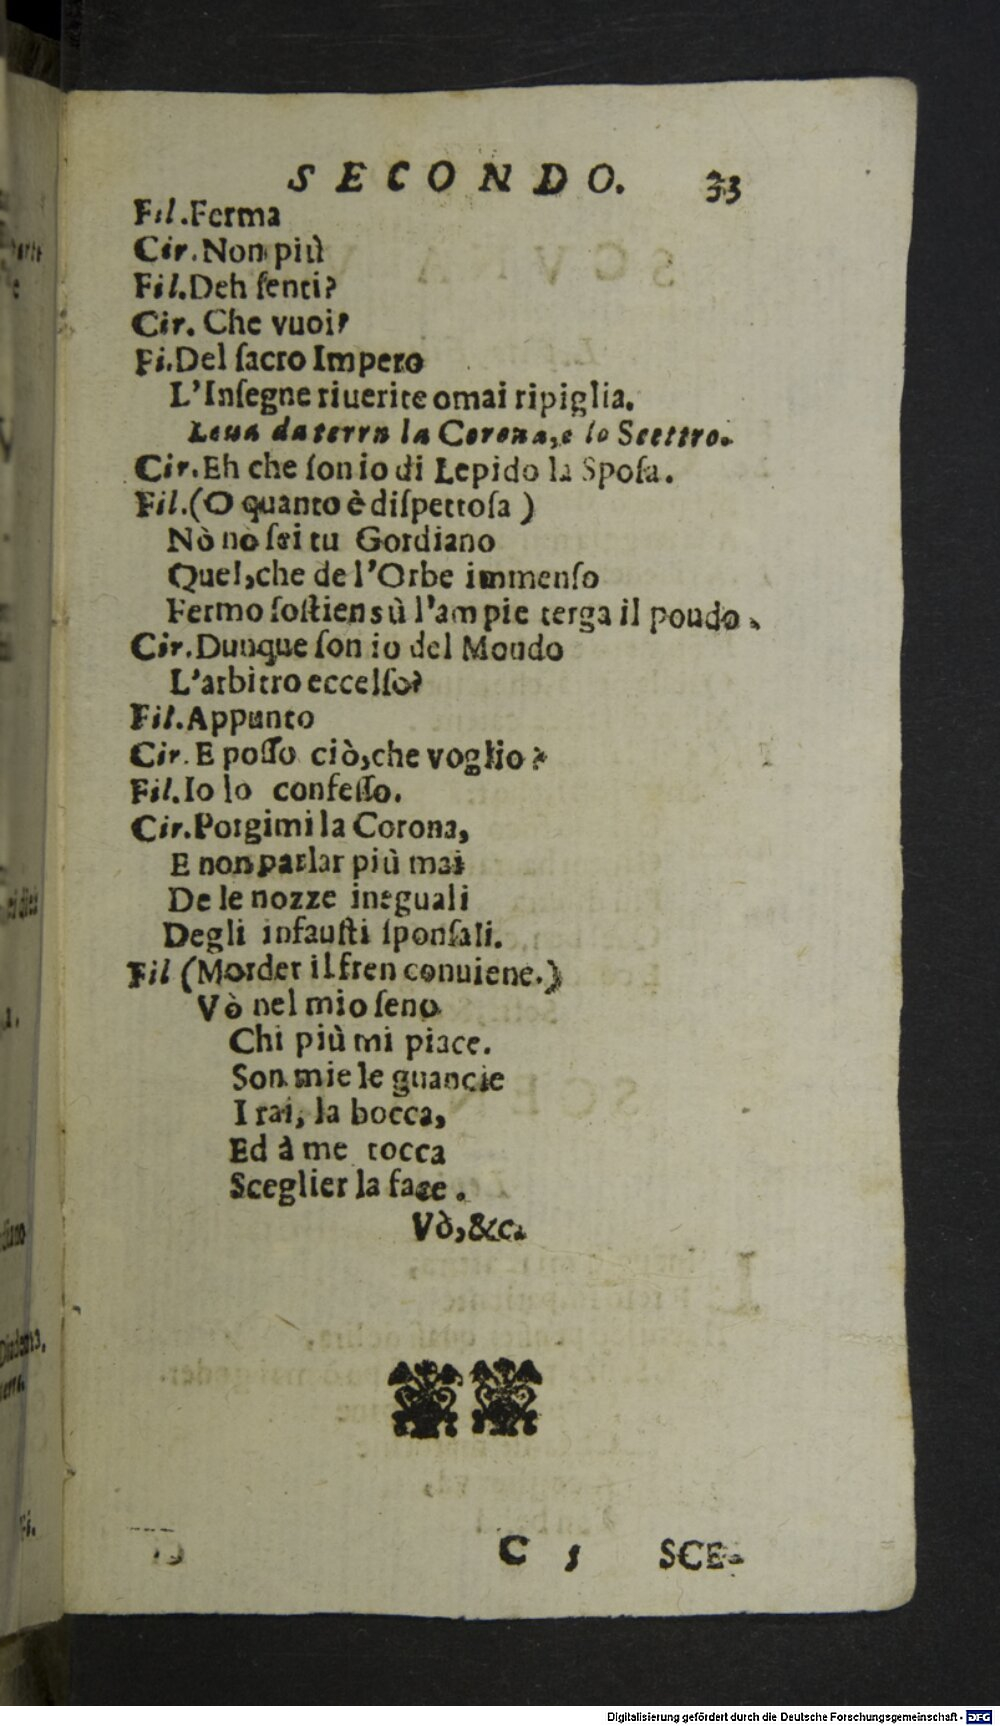 SECONDO. 33
Fil. Ferma
Cir. Non più
Fil. Deh ſenti?
Cir. Che vuoi?
Fi. Del ſacro Impero
L'Inſegne riuerite omai ripiglia.
Leua da terra la Corona, e lo Scettro.
Cir. Eh che ſon io di Lepido la Spoſa.
Fil. (O quanto è diſpettoſa)
Nò nò ſei tu Gordiano
Quel, che de l'Orbe immenſo
Fermo ſoſtien sù l'ampie terga il poudo.
Cir. Dunque ſon io del Mondo
L'arbitro eccelſo?
Fil. Appunto
Cir. E poſſo ciò, che voglio?
Fil. Io lo confeſſo.
Cir. Porgimi la Corona,
E non parlar più mai
De le nozze ineguali
Degli infauſti ſponſali.
Fil (Morder il fren conuiene.)
Vò nel mio ſeno
Chi più mi piace.
Son mie le guancie
I rai, la bocca,
Ed à me tocca
Sceglier la face.
Vò, &c.
C 5 SCE-
Digitalisierung gefördert durch die Deutsche Forschungsgemeinschaft - DFG